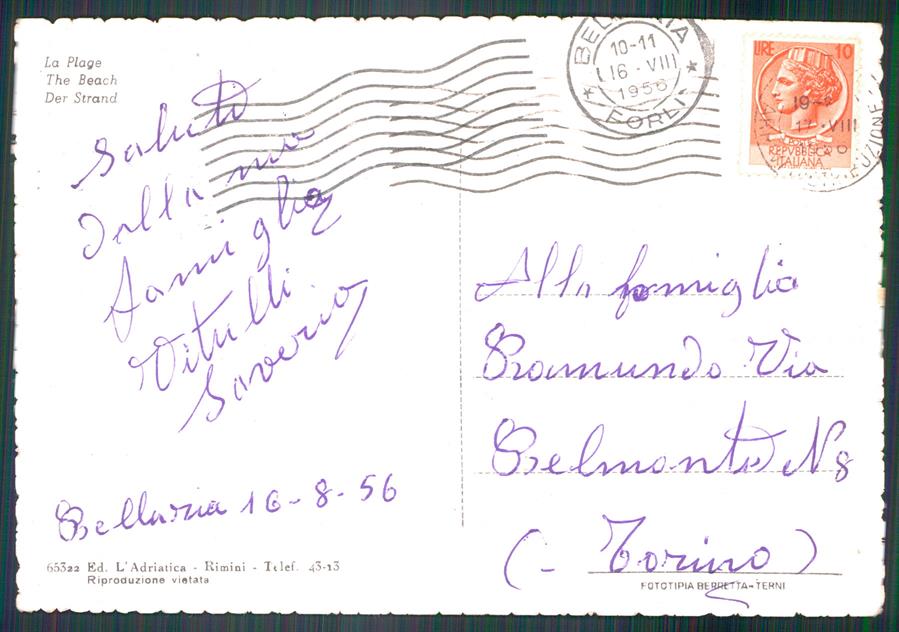 La Plage
The Beach
Der Strand
Saluti
Dalla mia
famiglia
Vitulli
Saverio
Bellaria 16-8-56
65322 Ed. L'Adriatica - Rimini - Telef. 43-13
Riproduzione vietata
BELLARIA
10-11
16 · VIII
1956
FORLI
LIRE 10
REPVBBLICA
ITALIANA
19-
17 · VIII
Alla famiglia
Ramundo Via
Belmonte N 8
(- Torino)
FOTOTIPIA BERRETTA-TERNI